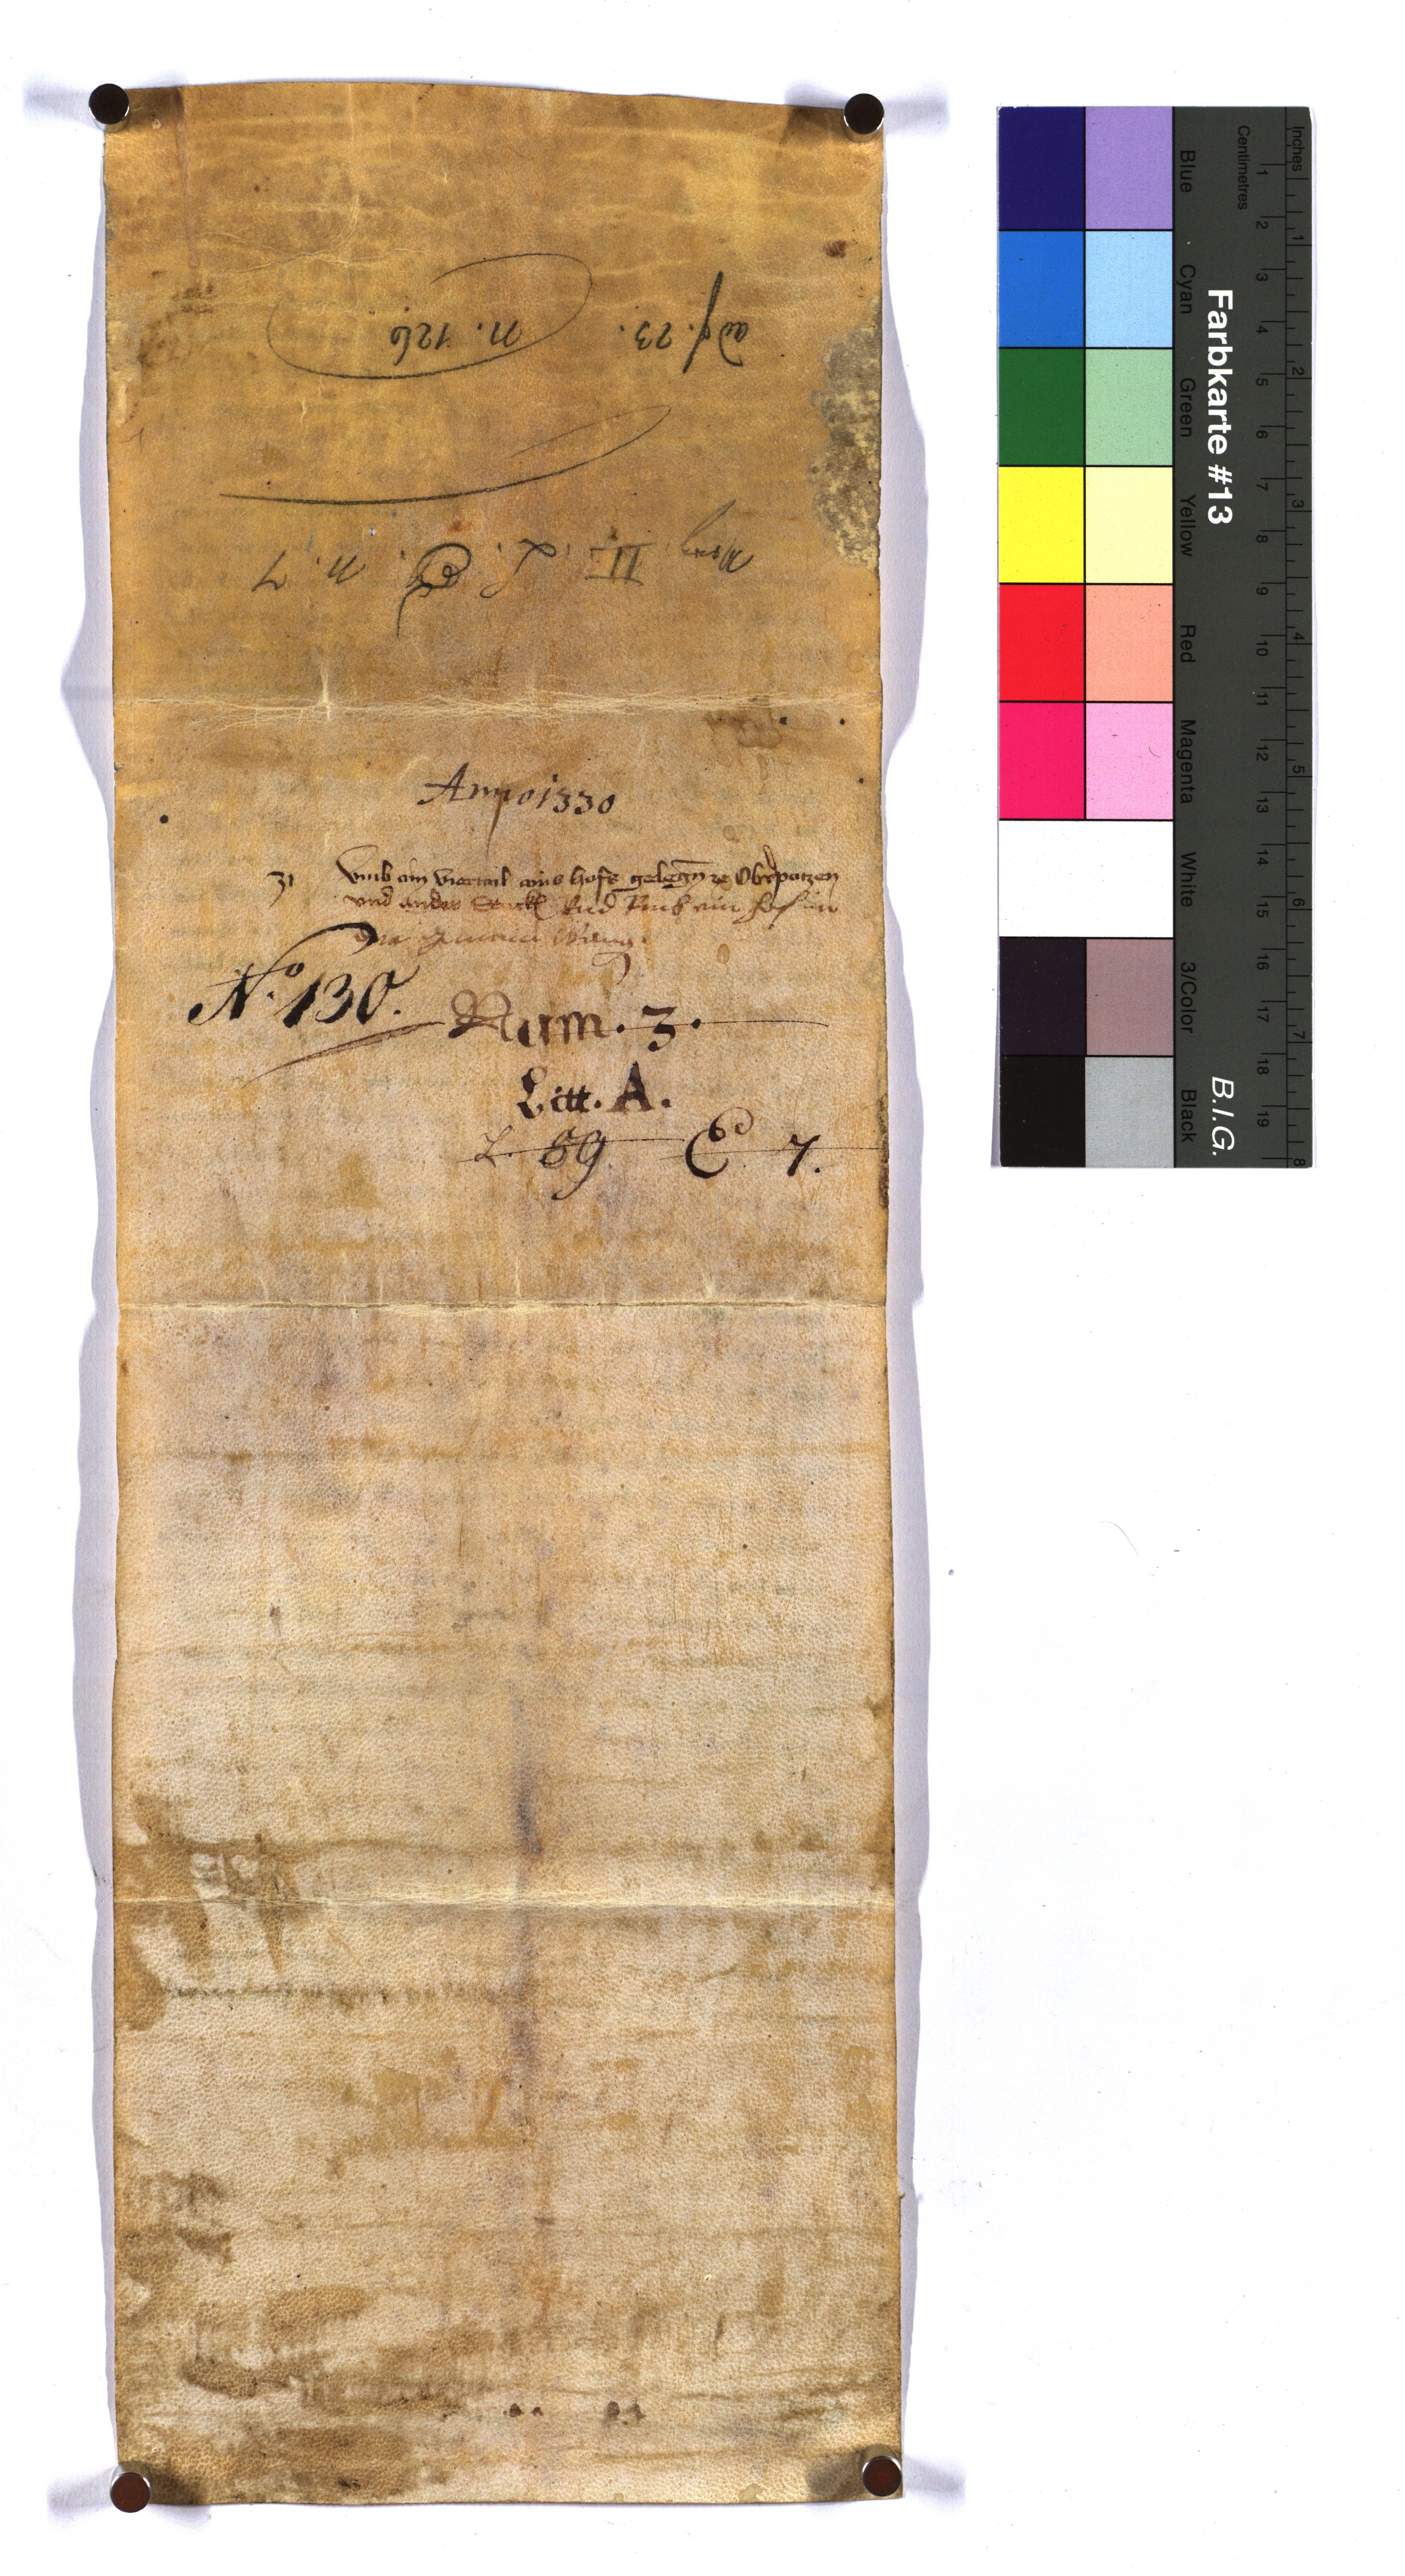 ad f. 23. n. 126
II. L. C. n. 7
Anno 1330
31 vmb ain viertail ains hofs gelegen ze Oberpatzen
vnd ander Stuckh Vnd Vmb ein hof in
der
No. 130.
Num. 3.
Litt. A.
L. 59 C 7.
Farbkarte #13 B.I.G.
Blue Cyan Green Yellow Red Magenta White 3/Color Black
Centimetres 1 2 3 4 5 6 7 8 9 10 11 12 13 14 15 16 17 18 19
Inches 1 2 3 4 5 6 7 8